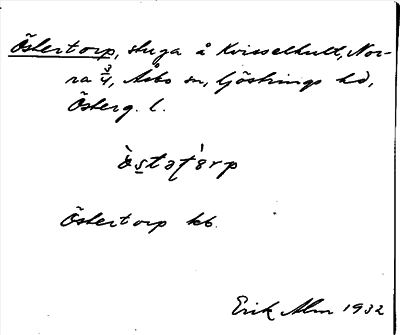 Östertorp, stuga å Kvisselhult, Nor-
ra 3/4, Åsbo sn, Göstrings hd,
Österg. l.
östətˈɔrp
Östertorp kb.
Erik Alm 1932